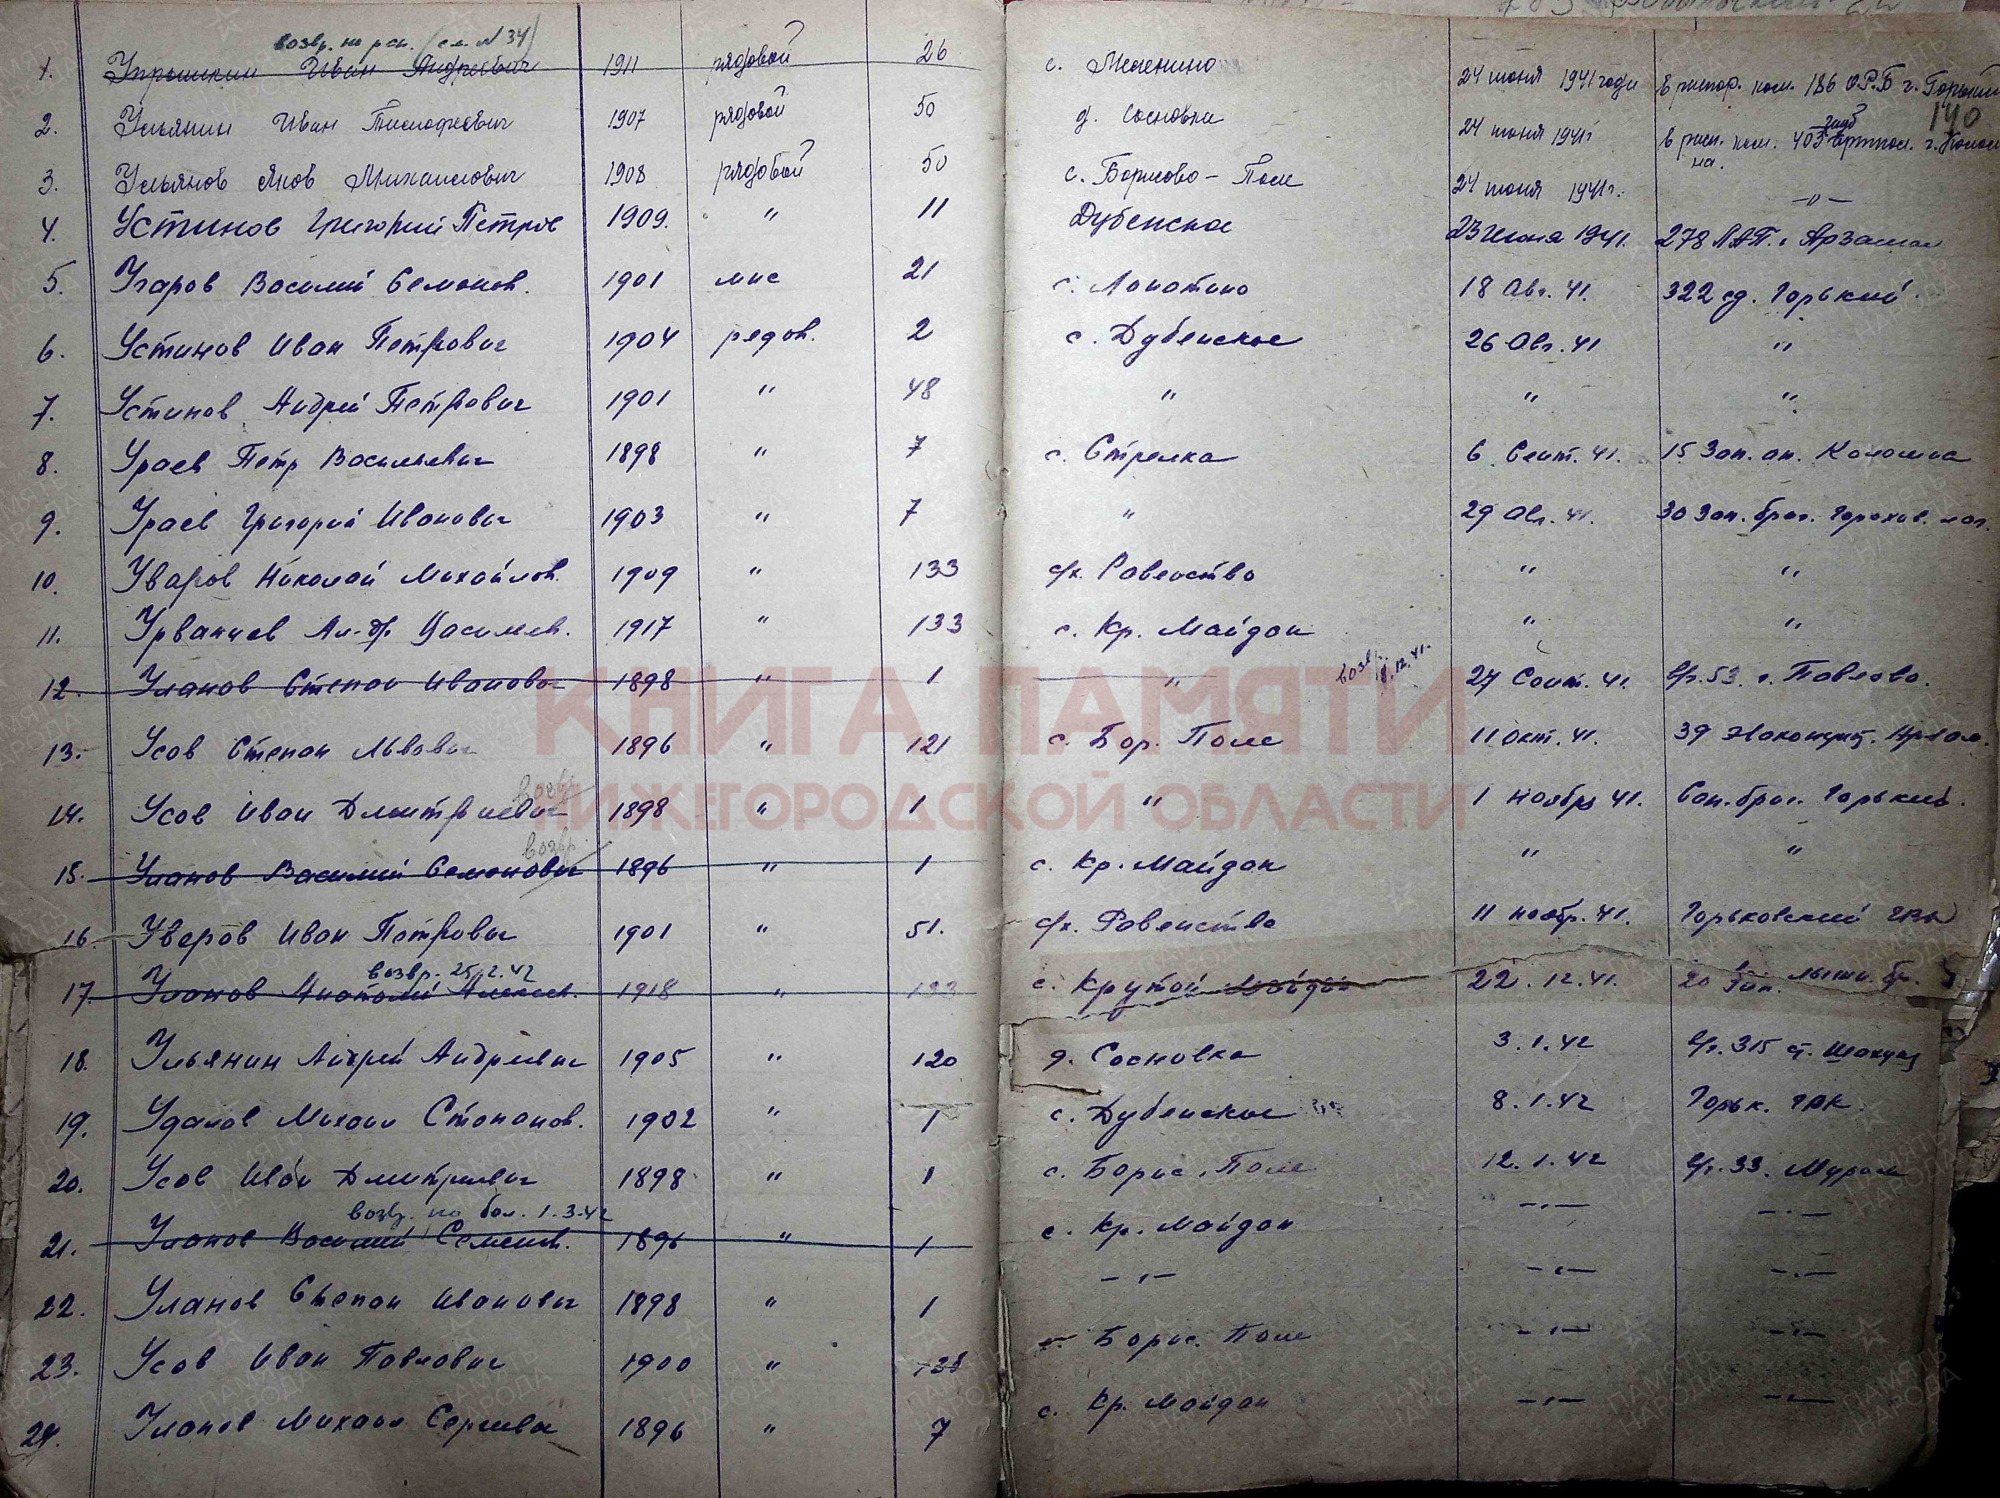 140
возвр. (см. N 34)
1. Упрышкин Иван Андреевич 1911 рядовой 26 с. 24 июня 1941 года в распор. ком. 186 О.Р.Б г. Горький
2. Ульянин Иван Тимофеевич 1907 рядовой 50 д. Сосновка 24 июня 1941г в расп. ком. 403 г. Коломна.
3. Ульянов Яков Михайлович 1908 рядовой 50 с. Борисово-Поле 24 июня 1941г. -"-
4. Устинов Григорий Петров 1909. " 11 Дубенское 23 Июня 1941. 278 ЛАП. г Арзамас
5. Угаров Василий Семенов. 1901 мнс 21 с. Лопатино 18 Авг. 41. 322 сд. Горький.
6. Устинов Иван Петрович 1904 редов. 2 с. Дубенское 26 Авг. 41 "
7. Устинов Андрей Петрович 1901 " 48 " " "
8. Ураев Петр Васильевич 1898 " 7 с. Стрелка 6 Сент. 41. 15 Зап. ап. Коломна
9. Ураев Григорий Иванович 1903 " 7 " 29 Авг. 41. 30 Зап. бриг. Горохов. лаг.
10. Уваров Николай Михайлов. 1909 " 133 с/х. Равенство " "
11. Урванцев Ал-др. Василев. 1917 " 133 с. Кр. Майдан " "
12. Уланов Степан Иванович 1898 " 1 " возвр. 8.12.41. 27 Сент. 41. в/ч. 53. г. Павлово.
13. Усов Степан Львович 1896 " 121 с. Бор. Поле 11 Окт. 41. 39
возвр.
14. Усов Иван Дмитриевич 1898 " 1 " 1 Ноября 41. Сап. бриг. Горький.
возвр.
15. Уланов Василий Семенович 1896 " 1 с. Кр. Майдан " "
16. Уверов Иван Петрович 1901 " 51. с/х. Равенство 11 ноябр. 41. Горьковский
возвр. 25.2.42
17. Уланов Анатолий Алексеев. 1918 " 133 с. Крутой Майдан 22. 12. 41. 20 Зап. лыжн. бр.
18. Ульянин Андрей Андреевич 1905 " 120 д. Сосновка 3. 1. 42 в/ч. 315 ст. Шахунья
19. Удалов Михаил Степанов. 1902 " 1 с. Дубенское 8. 1. 42 Горьк. ГВК.
20. Усов Иван Дмитриевич 1898 " 1 с. Борис. Поле 12. 1. 42 в/ч. 33. Муром
возвр. по бол. 1.3.42
21. Уланов Василий Семенов. 1896 " 1 с. Кр. Майдан -"- -"-
22. Уланов Степан Иванович 1898 " 1 -"- -"- -"-
23. Усов Иван Павлович 1900 " с. Борис. Поле -"- -"-
24. Уланов Михаил Сергеевич 1896 " 7 с. Кр. Майдан -"- -"-
КНИГА ПАМЯТИ
НИЖЕГОРОДСКОЙ ОБЛАСТИ